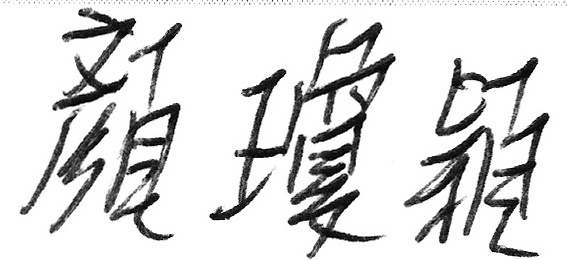 顏瓊穎